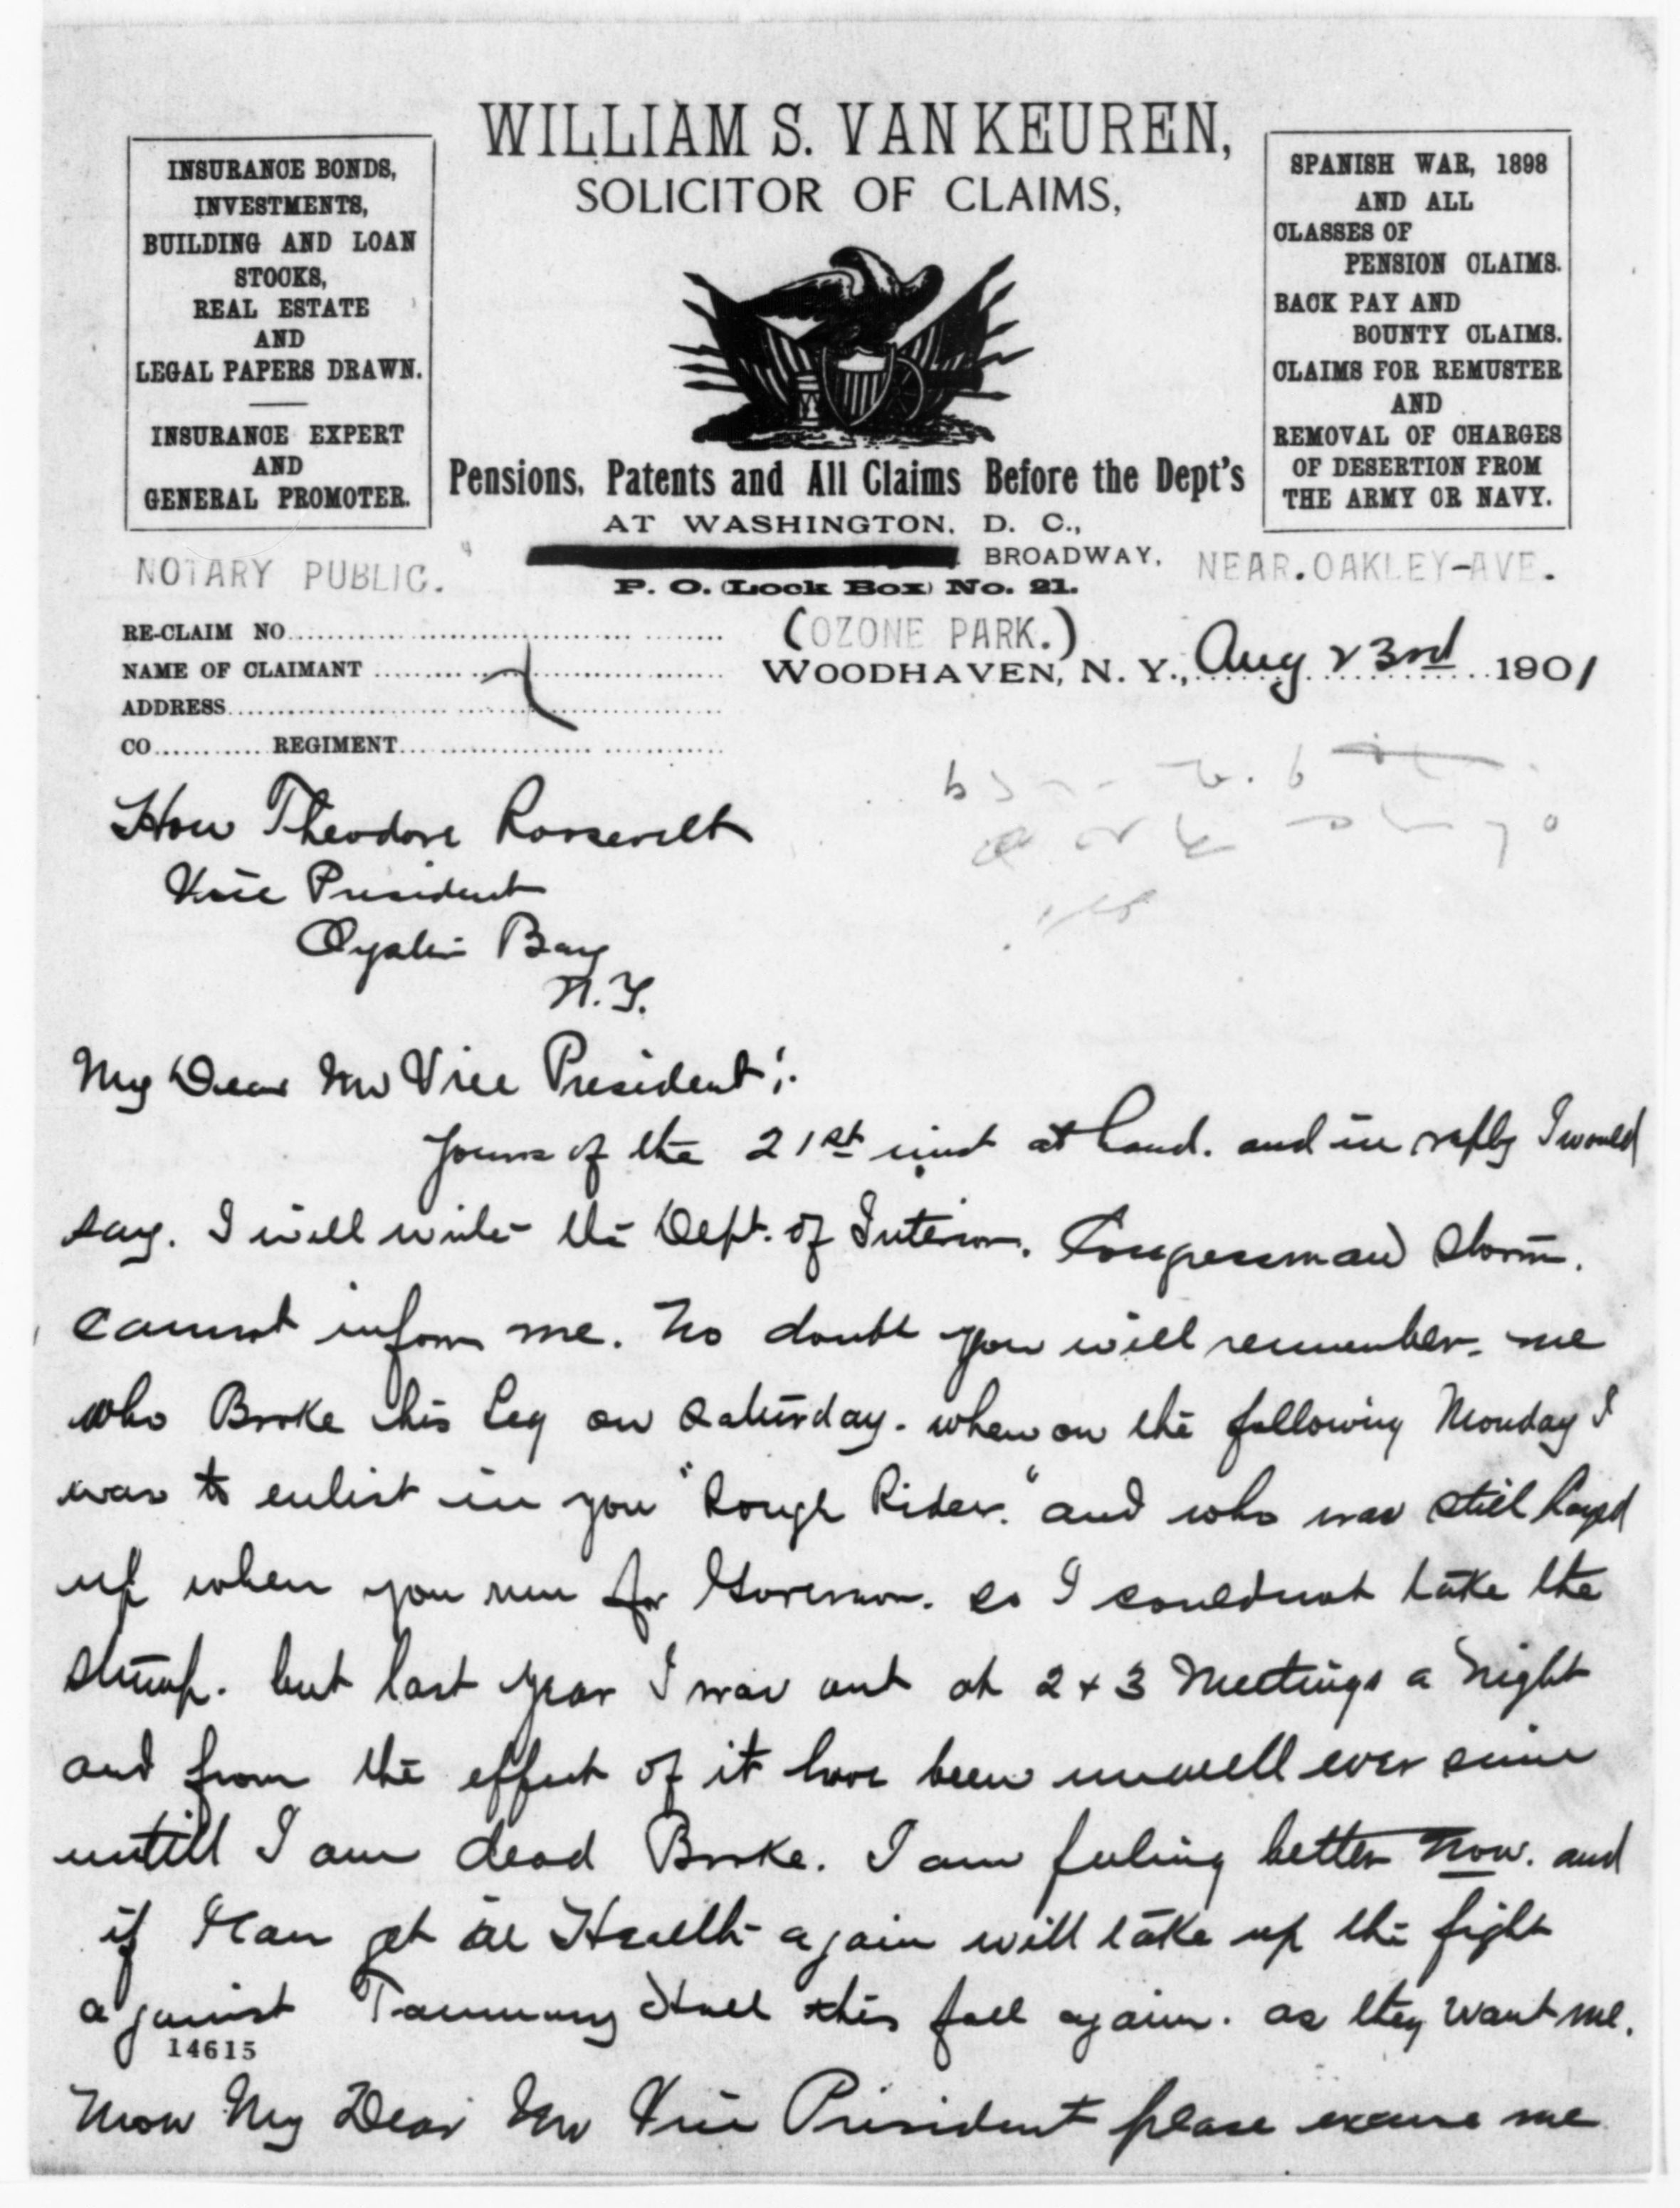 WILLIAM S. VAN KEUREN,
SOLICITOR OF CLAIMS,
INSURANCE BONDS,
INVESTMENTS,
BUILDING AND LOAN
STOCKS,
REAL ESTATE
AND
LEGAL PAPERS DRAWN.
INSURANCE EXPERT
AND
GENERAL PROMOTER.
SPANISH WAR, 1898
AND ALL
CLASSES OF
PENSION CLAIMS.
BACK PAY AND
BOUNTY CLAIMS.
CLAIMS FOR REMUSTER
AND
REMOVAL OF CHARGES
OF DESERTION FROM
THE ARMY OR NAVY.
Pensions, Patents and All Claims Before the Dept's
AT WASHINGTON, D. C.,
BROADWAY,
NOTARY PUBLIC.
NEAR.OAKLEY-AVE.
P. O. (Lock Box) No. 21.
(OZONE PARK.)
RE-CLAIM NO
NAME OF CLAIMANT
ADDRESS
CO REGIMENT
WOODHAVEN, N. Y., Aug 23rd 1901
Hon Theodore Roosevelt
Vice President
Oyster Bay
N.Y.
My Dear Mr Vice President;.
Yours of the 21st inst at hand. and in reply I would
say. I will write the Dept. of Interior. Congressman Storm.
cannot inform me. No doubt you will remember. me
who Broke his Leg on Saturday. when on the following Monday I
was to enlist in you "Rough Rider." and who was still layed
up when you run for Governor. so I couldnot take the
stump. but last year I was out at 2 + 3 Meetings a Night
and from the effect of it have been unwell ever since
untill I am dead Broke. I am feeling better now. and
if I can get in Health again will take up the fight
against Tammany Hall this fall again. as they want me.
14615
Now My Dear Mr Vice President please excuse me